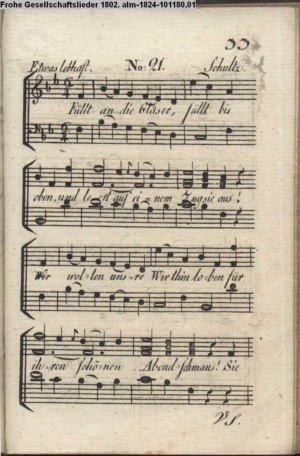 Frohe Gesellschaftslieder 1802. alm-1824-101180,01
33
Etwas lebhaft. No: 21. Schultz.
Füllt an die Gläser, füllt bis
oben, und leert auf ei-nem Zug sie aus!
Wir wol-len uns-re Wirthin lo-ben für
ih-ren schö-nen Abend-schmaus! Sie
VS.